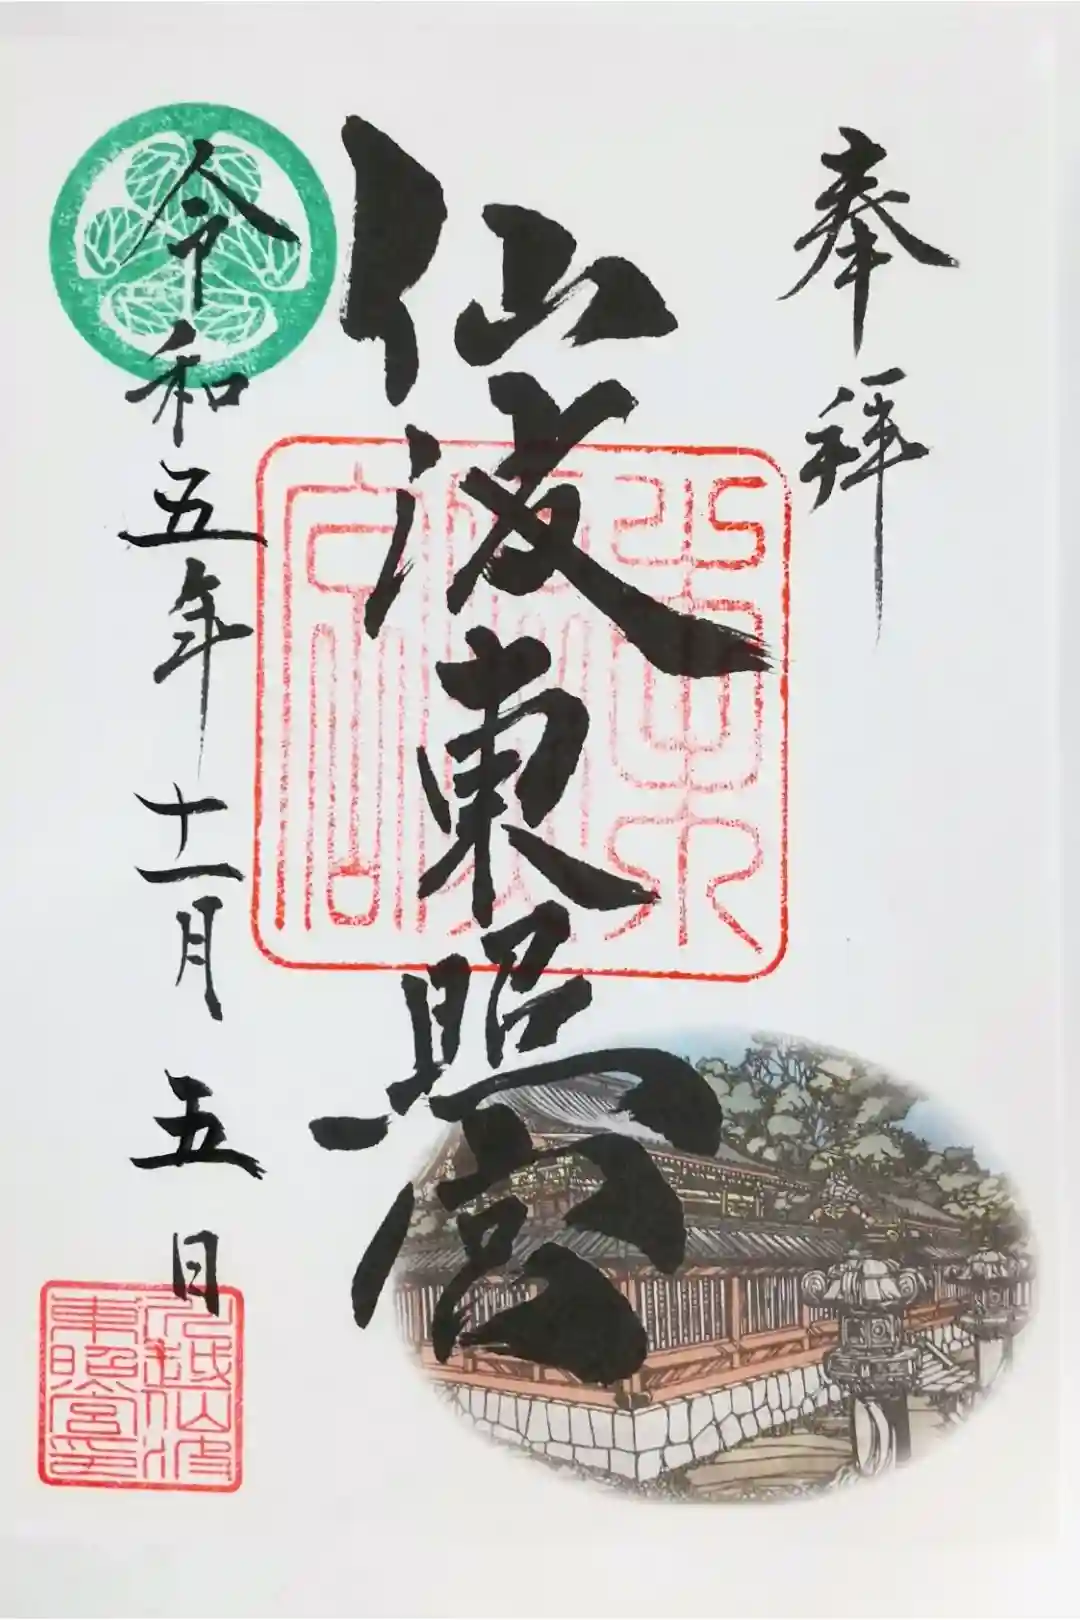 奉拝
仙波東照宮
令和五年十一月五日
川越仙波
東照宮印